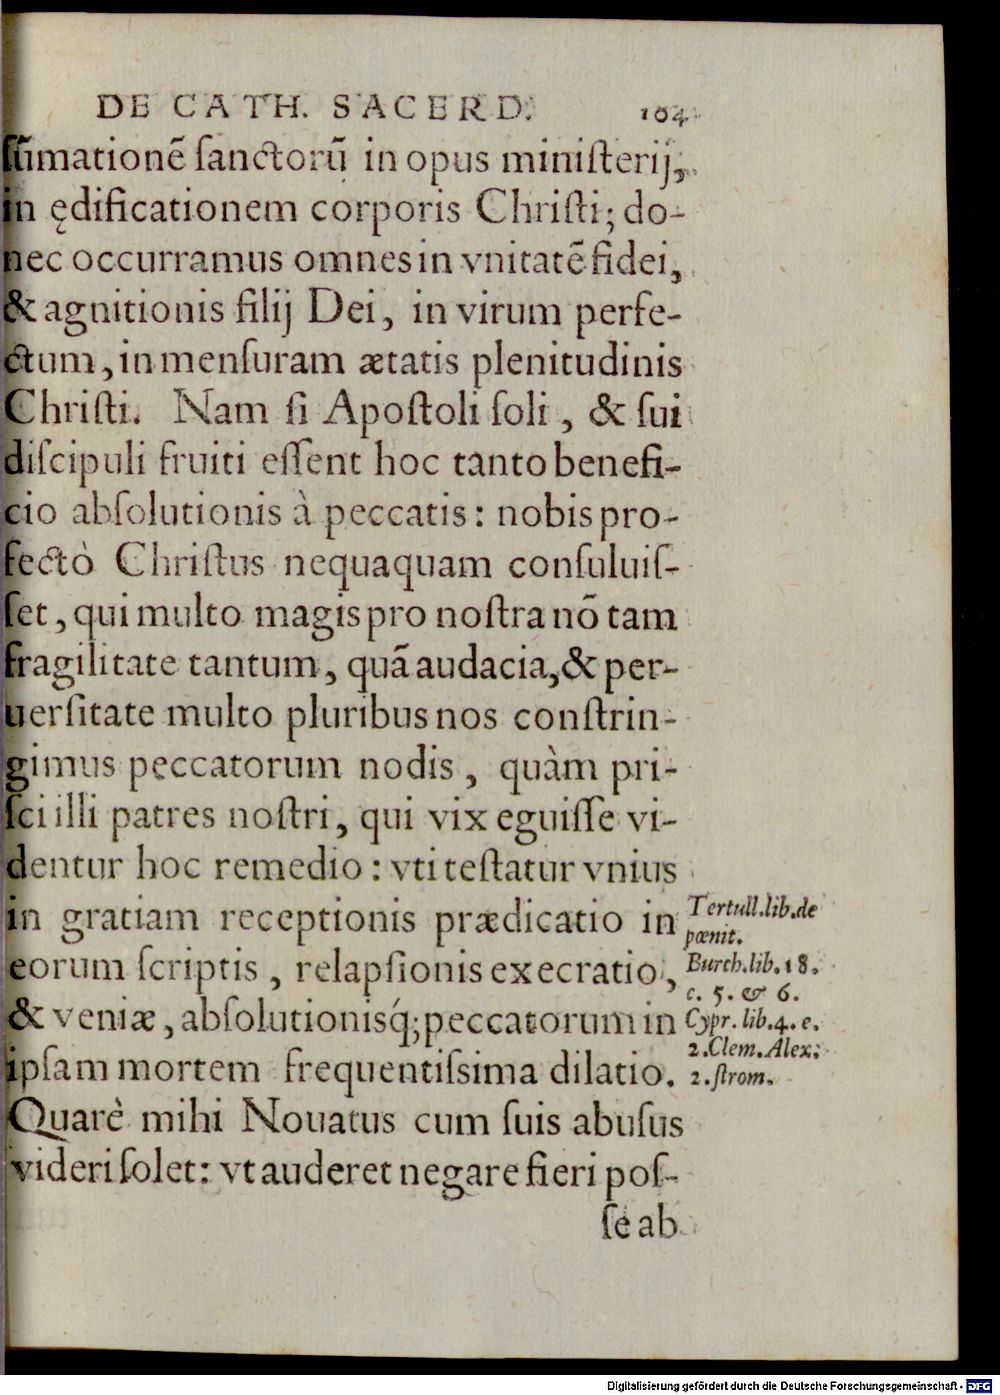 DE CATH. SACERD. 104
ſūmationẽ ſanctorũ in opus miniſterij,
in ędificationem corporis Chriſti; do-
nec occurramus omnes in vnitatẽ fidei,
& agnitionis filij Dei, in virum perfe-
ctum, in menſuram ætatis plenitudinis
Chriſti. Nam ſi Apoſtoli ſoli, & ſui
diſcipuli fruiti eſſent hoc tanto benefi-
cio abſolutionis à peccatis: nobis pro-
fectò Chriſtus nequaquam conſuluiſ-
ſet, qui multo magis pro noſtra nõ tam
fragilitate tantum, quã audacia, & per-
uerſitate multo pluribus nos conſtrin-
gimus peccatorum nodis, quàm pri-
ſci illi patres noſtri, qui vix eguiſſe vi-
dentur hoc remedio: vti teſtatur vnius
in gratiam receptionis prædicatio in
eorum ſcriptis, relapſionis execratio,
& veniæ, abſolutionisq́; peccatorum in
ipſam mortem frequentiſsima dilatio.
Quarè mihi Nouatus cum ſuis abuſus
videri ſolet: vt auderet negare fieri poſ-
ſe ab
Tertull. lib. de
pœnit.
Burch. lib. 18.
c. 5. & 6.
Cypr. lib. 4. e.
2. Clem. Alex.
2. ſtrom.
Digitalisierung gefördert durch die Deutsche Forschungsgemeinschaft - DFG